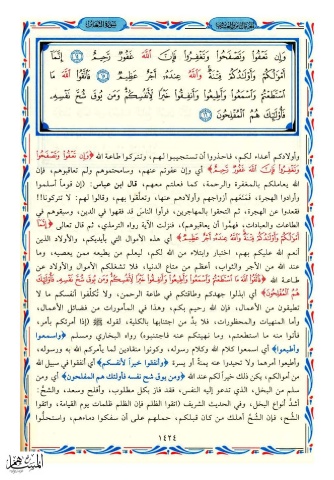 سورة التغابن
وَإِن تَعْفُوا۟ وَتَصْفَحُوا۟ وَتَغْفِرُوا۟ فَإِنَّ ٱللَّهَ غَفُورٌ رَّحِيمٌ ﴿١٤﴾ إِنَّمَآ
أَمْوَٰلُكُمْ وَأَوْلَـٰدُكُمْ فِتْنَةٌ ۚ وَٱللَّهُ عِندَهُۥٓ أَجْرٌ عَظِيمٌ ﴿١٥﴾ فَٱتَّقُوا۟ ٱللَّهَ مَا
ٱسْتَطَعْتُمْ وَٱسْمَعُوا۟ وَأَطِيعُوا۟ وَأَنفِقُوا۟ خَيْرًا لِّأَنفُسِكُمْ ۗ وَمَن يُوقَ شُحَّ نَفْسِهِۦ
فَأُو۟لَـٰٓئِكَ هُمُ ٱلْمُفْلِحُونَ ﴿١٦﴾
وأولادكم أعداء لكم، فاحذروا أن تستجيبوا لهم، وتتركوا طاعة الله ﴿وَإِن تَعْفُوا وَتَصْفَحُوا
وَتَغْفِرُوا فَإِنَّ اللَّهَ غَفُورٌ رَّحِيمٌ﴾ أي وإن عفوتم عنهم، وسامحتموهم ولم تعاقبوهم، فإن
الله يعاملكم بالمغفرة والرحمة، كما فعلتم معهم، قال ابن عباس: (إن قوماً أسلموا
وأرادوا الهجرة، فمنعهم أزواجهم وأولادهم عنها، وتعلّقوا بهم، وقالوا لهم: لا تتركونا!!
فقعدوا عن الهجرة، ثم التحقوا بالمهاجرين، فرأوا الناس قد فقهوا في الدين، وسبقوهم في
الطاعات والعبادات، فهمّوا أن يعاقبوهم)، فنزلت الآية رواه الترمذي، ثم قال تعالى ﴿إِنَّمَا
أَمْوَالُكُمْ وَأَوْلَادُكُمْ فِتْنَةٌ وَاللَّهُ عِندَهُ أَجْرٌ عَظِيمٌ﴾ أي هذه الأموال التي بأيديكم، والأولاد الذين
أنعم الله عليكم بهم، اختبار وابتلاء من الله لكم، ليعلم من يطيعه ممن يعصيه، وما
عند الله من الأجر والثواب، أعظم من متاع الدنيا، فلا تشغلكم الأموال والأولاد عن
طاعة الله ﴿فَاتَّقُوا اللَّهَ مَا اسْتَطَعْتُمْ وَاسْمَعُوا وَأَطِيعُوا وَأَنفِقُوا خَيْرًا لِّأَنفُسِكُمْ وَمَن يُوقَ شُحَّ نَفْسِهِ فَأُولَئِكَ
هُمُ الْمُفْلِحُونَ﴾ أي ابذلوا جهدكم وطاقتكم في طاعة الرحمن، ولا تُكلّفوا أنفسكم ما لا
تطيقون من الأعمال، فإن الله رحيم بكم، وهذا في المأمورات من فضائل الأعمال،
وأما المنهيات والمحظورات، فلا بدّ من اجتنابها بالكلية، لقوله ﷺ (إذا أمرتكم بأمر،
فأتوا منه ما استطعتم، وما نهيتكم عنه فاجتنبوه) رواه البخاري ومسلم ﴿واسمعوا
وأطيعوا﴾ أي اسمعوا كلام الله وكلام رسوله، وكونوا منقادين لما يأمركم الله به ورسوله،
وأطيعوا أمرهما ولا تحيدوا عنه يمنة أو يسرة ﴿وأنفقوا خيراً لأنفسكم﴾ أي أنفقوا في سبيل الله
من أموالكم، يكن ذلك خيراً لكم عند الله ﴿ومن يوق شح نفسه فأولئك هم المفلحون﴾ أي ومن
سلم من البخل، الذي تدعو إليه النفس، فقد فاز بكل مطلوب، وأفلح وسعد، والشحّ:
أشدّ أنواع البخل، وفي الحديث الشريف (اتقوا الظلم فإن الظلم ظلمات يوم القيامة، واتقوا
الشُّح، فإن الشُّحّ أهلك من كان قبلكم، حملهم على أن سفكوا دماءهم، واستحلّوا
١٤٢٤